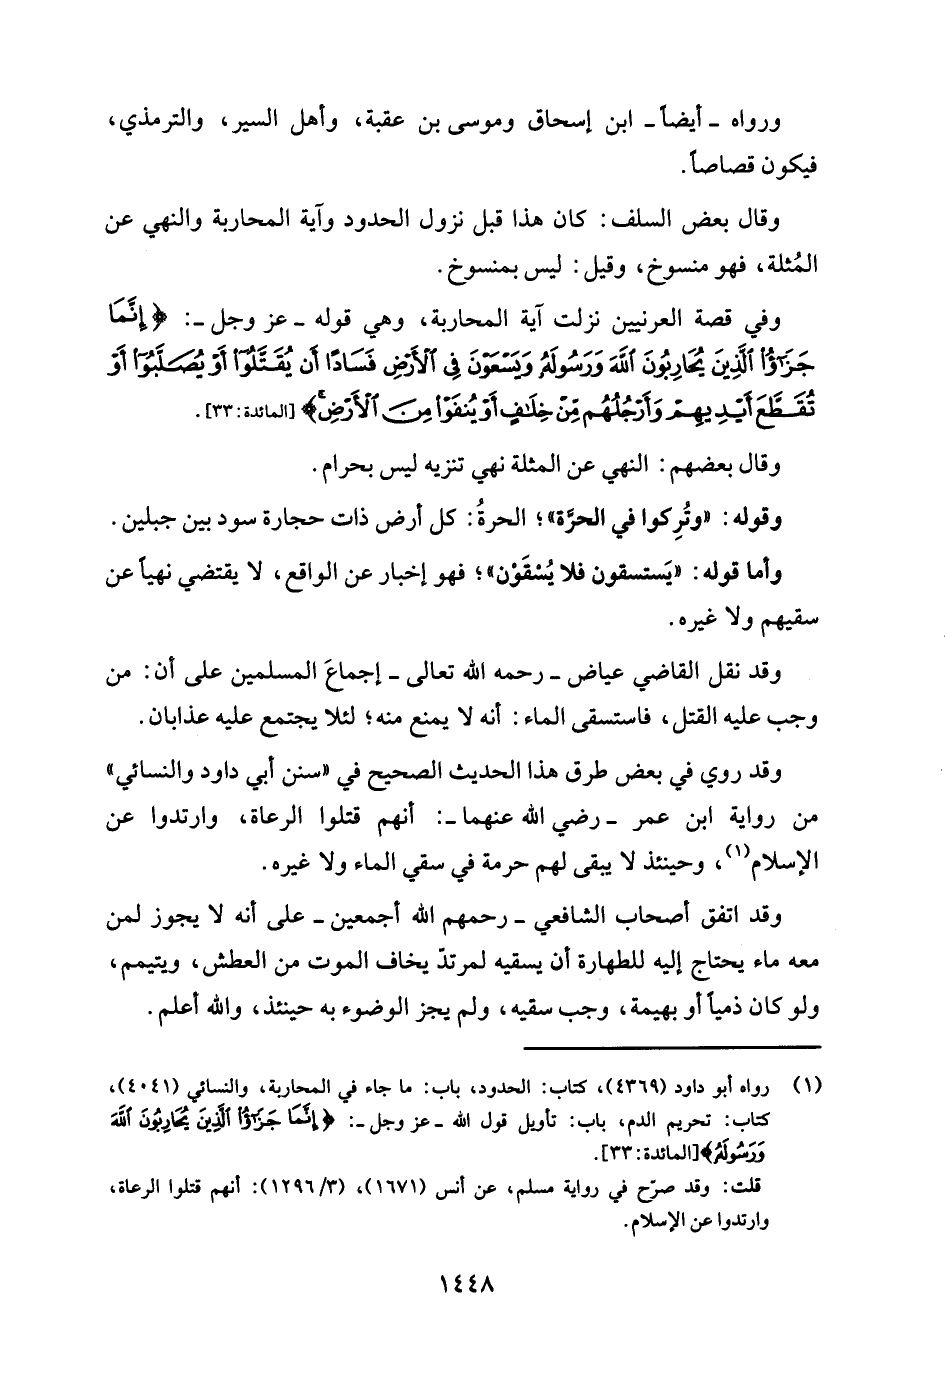 ورواه ـ أيضاً ـ ابن إسحاق وموسى بن عقبة، وأهل السير، والترمذي،
فيكون قصاصاً.
وقال بعض السلف: كان هذا قبل نزول الحدود وآية المحاربة والنهي عن
المُثلة، فهو منسوخ، وقيل: ليس بمنسوخ.
وفي قصة العرنيين نزلت آية المحاربة، وهي قوله ـ عز وجل ـ: ﴿إِنَّمَا
جَزَٰٓؤُاْ ٱلَّذِينَ يُحَارِبُونَ ٱللَّهَ وَرَسُولَهُۥ وَيَسْعَوْنَ فِى ٱلْأَرْضِ فَسَادًا أَن يُقَتَّلُوٓاْ أَوْ يُصَلَّبُوٓاْ أَوْ
تُقَطَّعَ أَيْدِيهِمْ وَأَرْجُلُهُم مِّنْ خِلَٰفٍ أَوْ يُنفَوْاْ مِنَ ٱلْأَرْضِۚ﴾ [المائدة: ٣٣].
وقال بعضهم: النهي عن المثلة نهي تنزيه ليس بحرام.
وقوله: «وتُرِكوا في الحرَّة»؛ الحرةُ: كل أرض ذات حجارة سود بين جبلين.
وأما قوله: «يَستسقون فلا يُسْقَوْن»؛ فهو إخبار عن الواقع، لا يقتضي نهياً عن
سقيهم ولا غيره.
وقد نقل القاضي عياض ـ رحمه الله تعالى ـ إجماعَ المسلمين على أن: من
وجب عليه القتل، فاستسقى الماء: أنه لا يمنع منه؛ لئلا يجتمع عليه عذابان.
وقد روي في بعض طرق هذا الحديث الصحيح في «سنن أبي داود والنسائي»
من رواية ابن عمر ـ رضي الله عنهما ـ: أنهم قتلوا الرعاة، وارتدوا عن
الإسلام(١)، وحينئذ لا يبقى لهم حرمة في سقي الماء ولا غيره.
وقد اتفق أصحاب الشافعي ـ رحمهم الله أجمعين ـ على أنه لا يجوز لمن
معه ماء يحتاج إليه للطهارة أن يسقيه لمرتدّ يخاف الموت من العطش، ويتيمم،
ولو كان ذمياً أو بهيمة، وجب سقيه، ولم يجز الوضوء به حينئذ، والله أعلم.
(١) رواه أبو داود (٤٣٦٩)، كتاب: الحدود، باب: ما جاء في المحاربة، والنسائي (٤٠٤١)،
كتاب: تحريم الدم، باب: تأويل قول الله ـ عز وجل ـ: ﴿إِنَّمَا جَزَٰٓؤُاْ ٱلَّذِينَ يُحَارِبُونَ ٱللَّهَ
وَرَسُولَهُۥ﴾ [المائدة: ٣٣].
قلت: وقد صرّح في رواية مسلم، عن أنس (١٦٧١)، (٣/ ١٢٩٦): أنهم قتلوا الرعاة،
وارتدوا عن الإسلام.
١٤٤٨